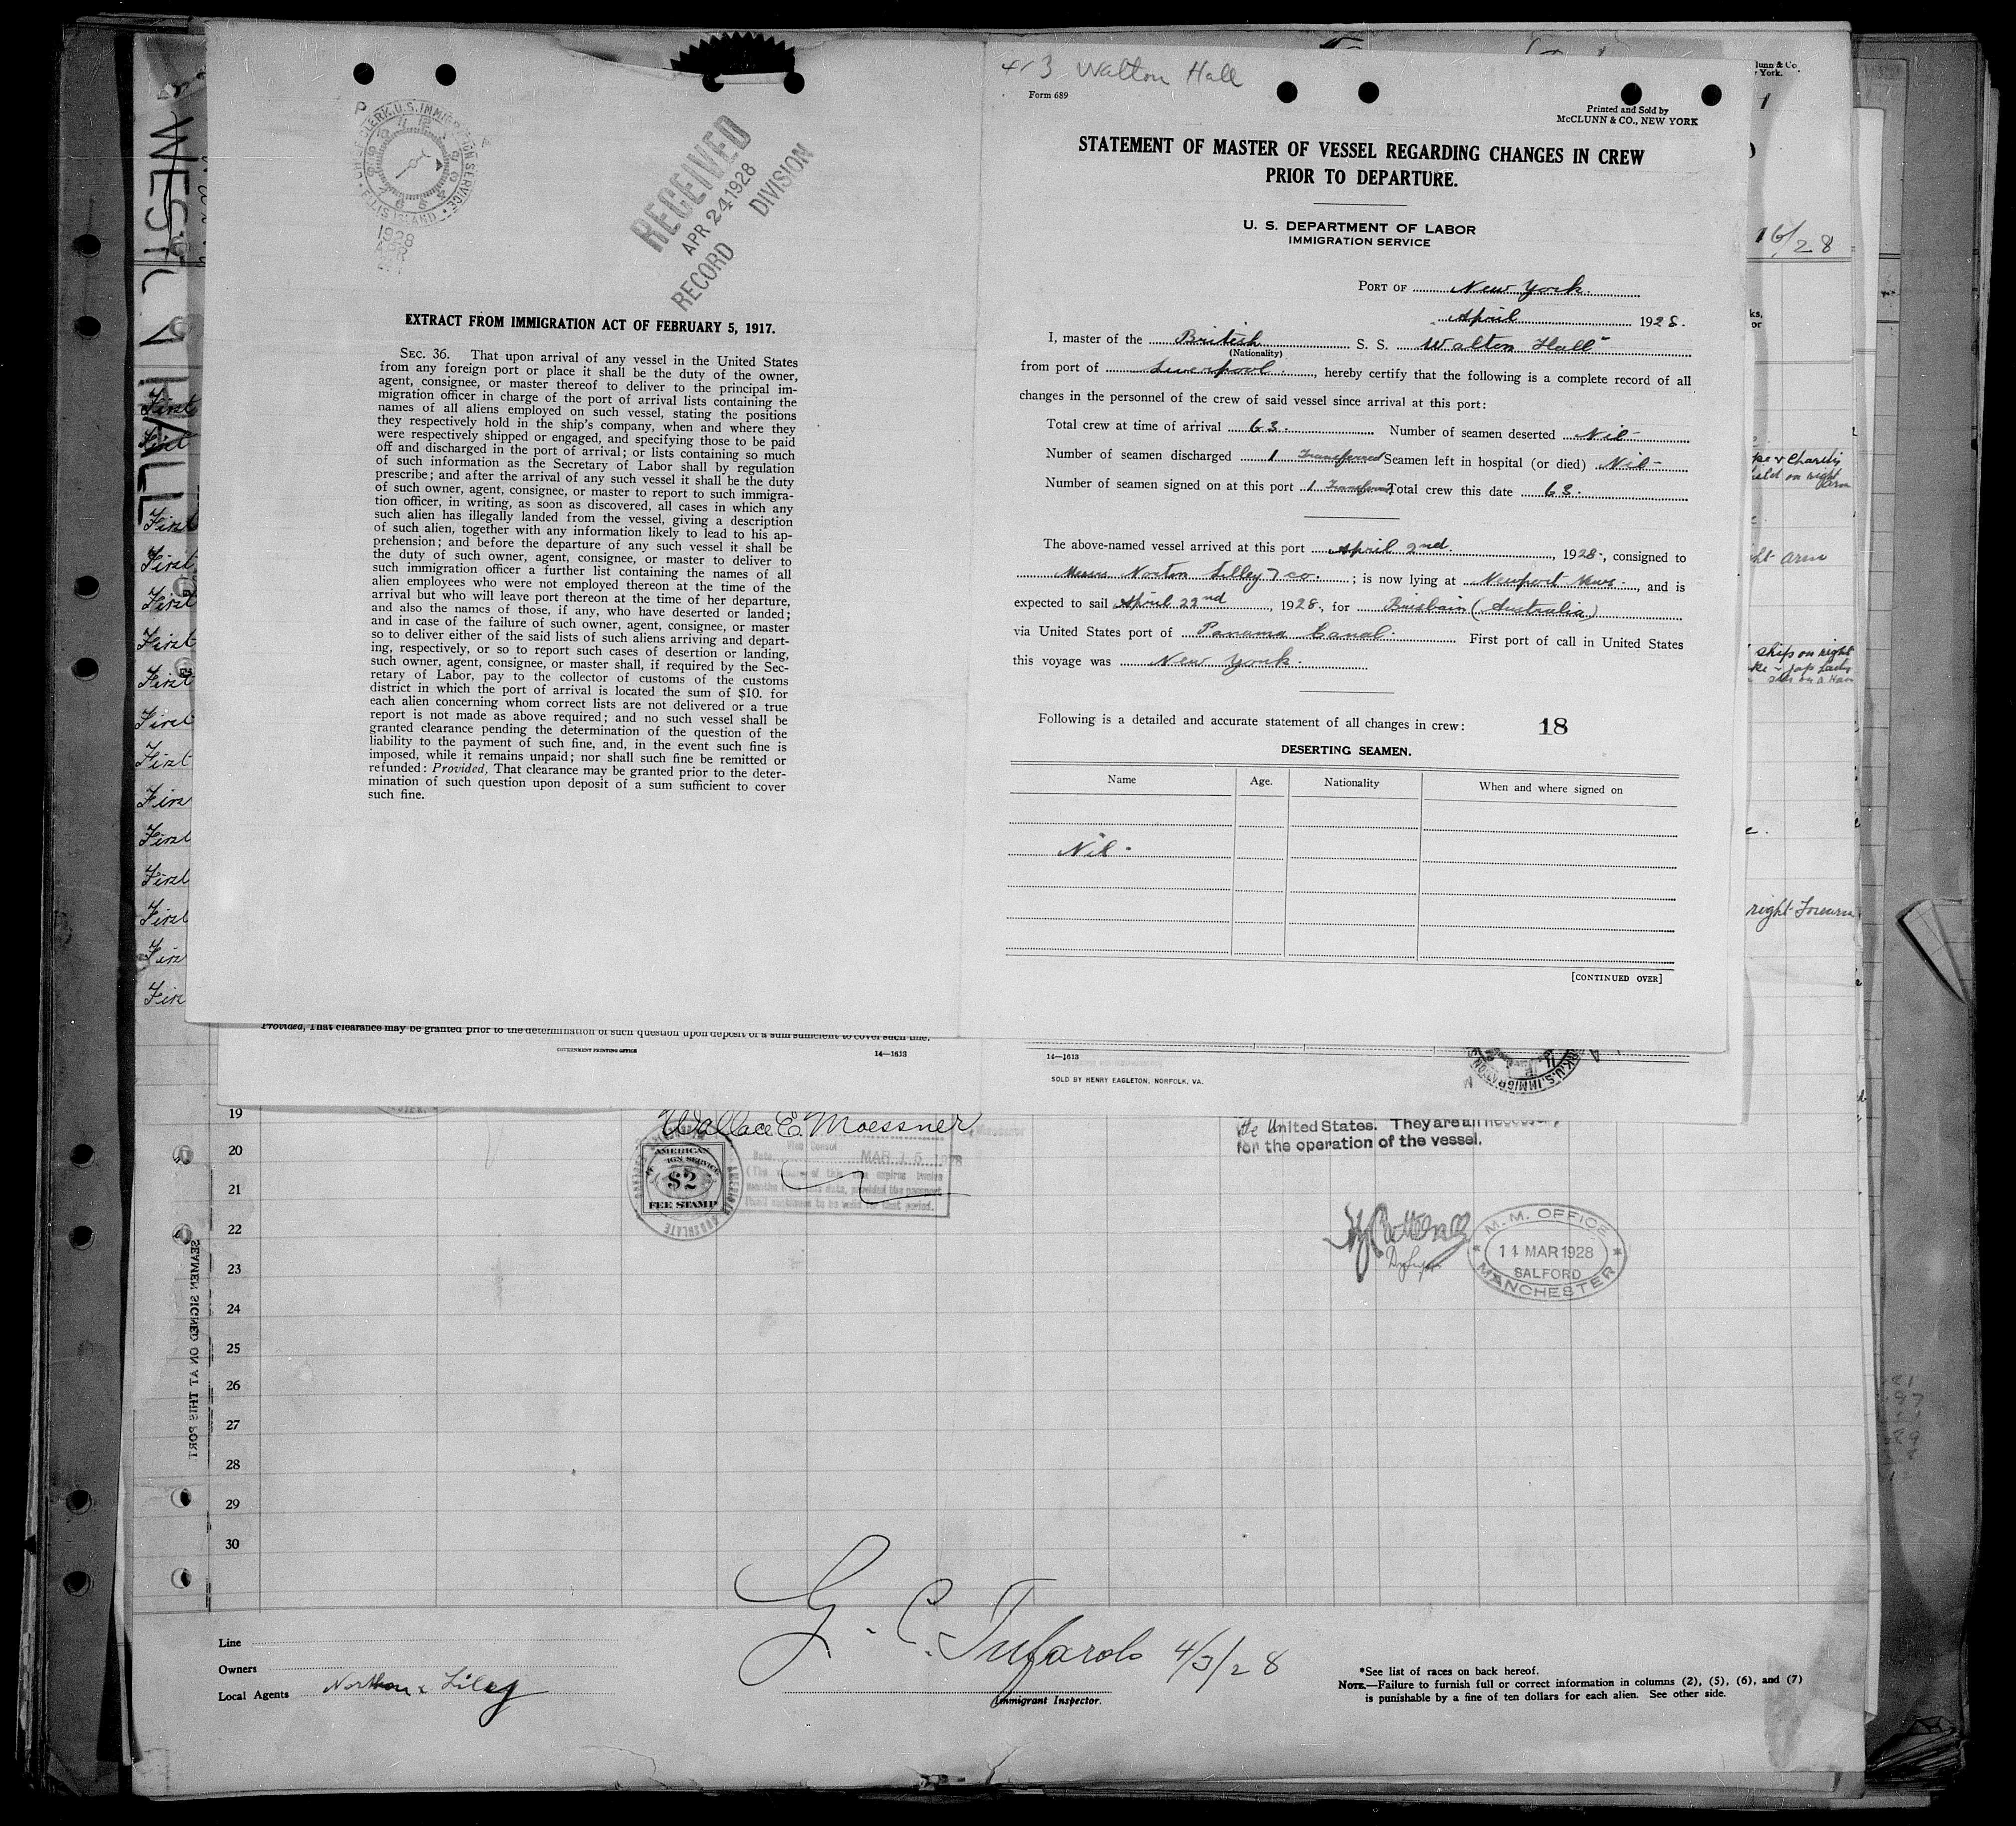 WEST
HALL
First
First
First
First
First
First
First
First
First
Firs
First
First
First
Firs
Firs
CHIEF CLERK, U.S. IMMIGRATION SERVICE
ELLIS ISLAND
1928
APR
RECEIVED
APR 24 1928
RECORD DIVISION
EXTRACT FROM IMMIGRATION ACT OF FEBRUARY 5, 1917.
SEC. 36. That upon arrival of any vessel in the United States
from any foreign port or place it shall be the duty of the owner,
agent, consignee, or master thereof to deliver to the principal im-
migration officer in charge of the port of arrival lists containing the
names of all aliens employed on such vessel, stating the positions
they respectively hold in the ship's company, when and where they
were respectively shipped or engaged, and specifying those to be paid
off and discharged in the port of arrival; or lists containing so much
of such information as the Secretary of Labor shall by regulation
prescribe; and after the arrival of any such vessel it shall be the duty
of such owner, agent, consignee, or master to report to such immigra-
tion officer, in writing, as soon as discovered, all cases in which any
such alien has illegally landed from the vessel, giving a description
of such alien, together with any information likely to lead to his ap-
prehension; and before the departure of any such vessel it shall be
the duty of such owner, agent, consignee, or master to deliver to
such immigration officer a further list containing the names of all
alien employees who were not employed thereon at the time of the
arrival but who will leave port thereon at the time of her departure,
and also the names of those, if any, who have deserted or landed;
and in case of the failure of such owner, agent, consignee, or master
so to deliver either of the said lists of such aliens arriving and depart-
ing, respectively, or so to report such cases of desertion or landing,
such owner, agent, consignee, or master shall, if required by the Sec-
retary of Labor, pay to the collector of customs of the customs
district in which the port of arrival is located the sum of $10. for
each alien concerning whom correct lists are not delivered or a true
report is not made as above required; and no such vessel shall be
granted clearance pending the determination of the question of the
liability to the payment of such fine, and, in the event such fine is
imposed, while it remains unpaid; nor shall such fine be remitted or
refunded: Provided, That clearance may be granted prior to the deter-
mination of such question upon deposit of a sum sufficient to cover
such fine.
413 Walton Hall
Form 689
Printed and Sold by
McCLUNN & CO., NEW YORK
STATEMENT OF MASTER OF VESSEL REGARDING CHANGES IN CREW
PRIOR TO DEPARTURE.
U. S. DEPARTMENT OF LABOR
IMMIGRATION SERVICE
PORT OF New York.
April 1928.
I, master of the British S. S. Walton Hall
(Nationality)
from port of Liverpool, hereby certify that the following is a complete record of all
changes in the personnel of the crew of said vessel since arrival at this port:
Total crew at time of arrival 63. Number of seamen deserted Nil
Number of seamen discharged 1 Transferred Seamen left in hospital (or died) Nil
Number of seamen signed on at this port 1 Transferred Total crew this date 63.
The above-named vessel arrived at this port April 2nd., 1928, consigned to
Messrs Norton Lilley & Co.; is now lying at Newport News, and is
expected to sail April 22nd, 1928, for Brisbain (Australia)
via United States port of Panama Canal. First port of call in United States
this voyage was New York.
Following is a detailed and accurate statement of all changes in crew: 18
DESERTING SEAMEN.
Name Age. Nationality When and where signed on
Nil
[CONTINUED OVER]
lunn & Co
York.
16/28
ks,
or
pe & Charity
ield on right
arm
ht arm
ships on right
right Forearm
Provided, That clearance may be granted prior to the determination of such question upon deposit of a sum sufficient to cover such fine.
GOVERNMENT PRINTING OFFICE 14—1613
14—1613
SOLD BY HENRY EAGLETON, NORFOLK, VA.
19
20
21
22
23
24
25
26
27
28
29
30
SEAMEN SIGNED ON AT THIS PORT
Wallace E. Moessner
Vice Consul
Date MAR 15 1928
months from this date, provided the passport
AMERICAN
FOREIGN SERVICE
$2
FEE STAMP
AMERICAN CONSULATE
the United States. They are all necessary
for the operation of the vessel.
M. M. OFFICE
14 MAR 1928
SALFORD
MANCHESTER
G. C. Tufarolo 4/3/28
Immigrant Inspector.
Line
Owners
Local Agents Northon & Liley
*See list of races on back hereof.
NOTE.—Failure to furnish full or correct information in columns (2), (5), (6), and (7)
is punishable by a fine of ten dollars for each alien. See other side.